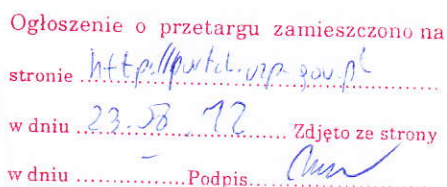 Ogłoszenie o przetargu zamieszczono na
stronie http://portal.uzp.gov.pl
w dniu 23.08.12 Zdjęto ze strony
w dniu – Podpis